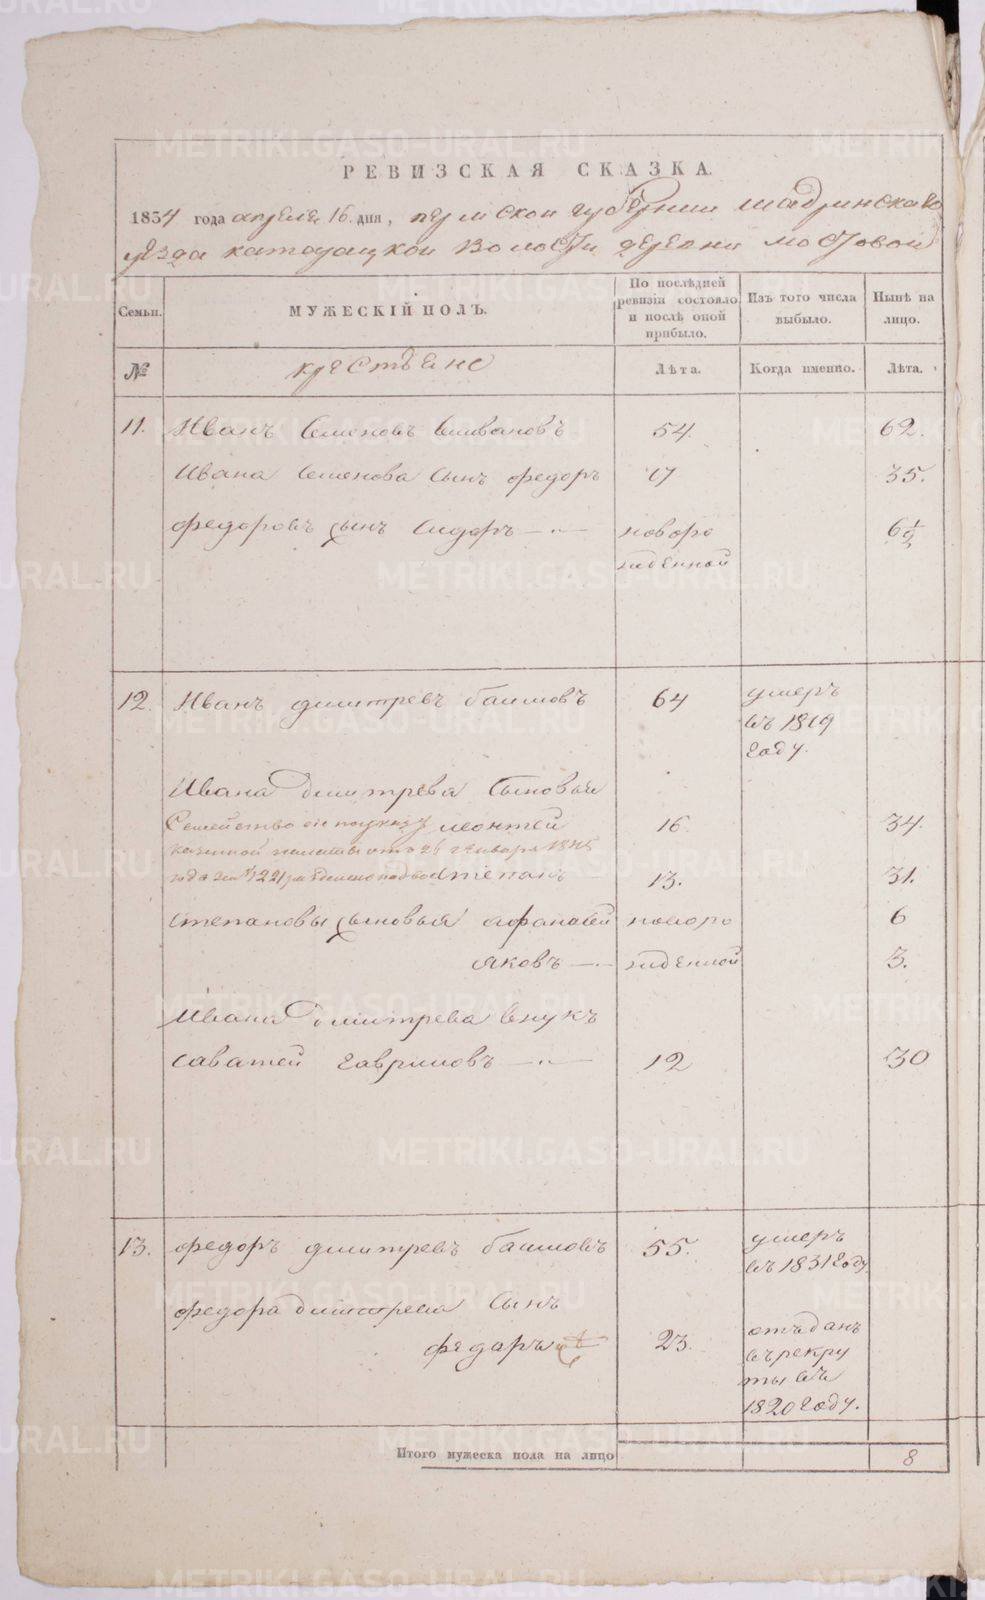 РЕВИЗСКАЯ СКАЗКА.
1834 года апреля 16 дня, пермской губернии шадринскаго
уезда катодацкой волости деревни мостовой
Семьи.
МУЖЕСКІЙ ПОЛЪ.
По послѣдней ревизіи состояло и послѣ оной прибыло.
Изъ того числа выбыло.
Нынѣ на лицо.
№
крестьяне
Лѣта.
Когда именно.
Лѣта.
11. Иванъ Семеновъ Селивановъ 54. 62.
Ивана Семенова сынъ федоръ 17 35.
федоровъ сынъ Сидоръ — новоро 6 1/2
жденной
12. Иванъ димитревъ баимовъ 64 умеръ
въ 1819
году.
Ивана димитрева сыновья
Семейство сie по указу леонтей 16. 34.
казенной палаты отъ 26 генваря 1845
года за № 1221 степанъ 13. 31.
степановы сыновья афанасей новоро 6
яковъ — жденной 3.
Ивана димитрева внукъ
саватей гавриловъ — 12 30
13. федоръ димитревъ баимовъ 55. умеръ
въ 1831 году
федора димитрева сынъ
федоръ 23. отъданъ
въ рекру
ты въ
1820 году.
Итого мужеска пола на лицо 8
METRIKI.GASO-URAL.RU